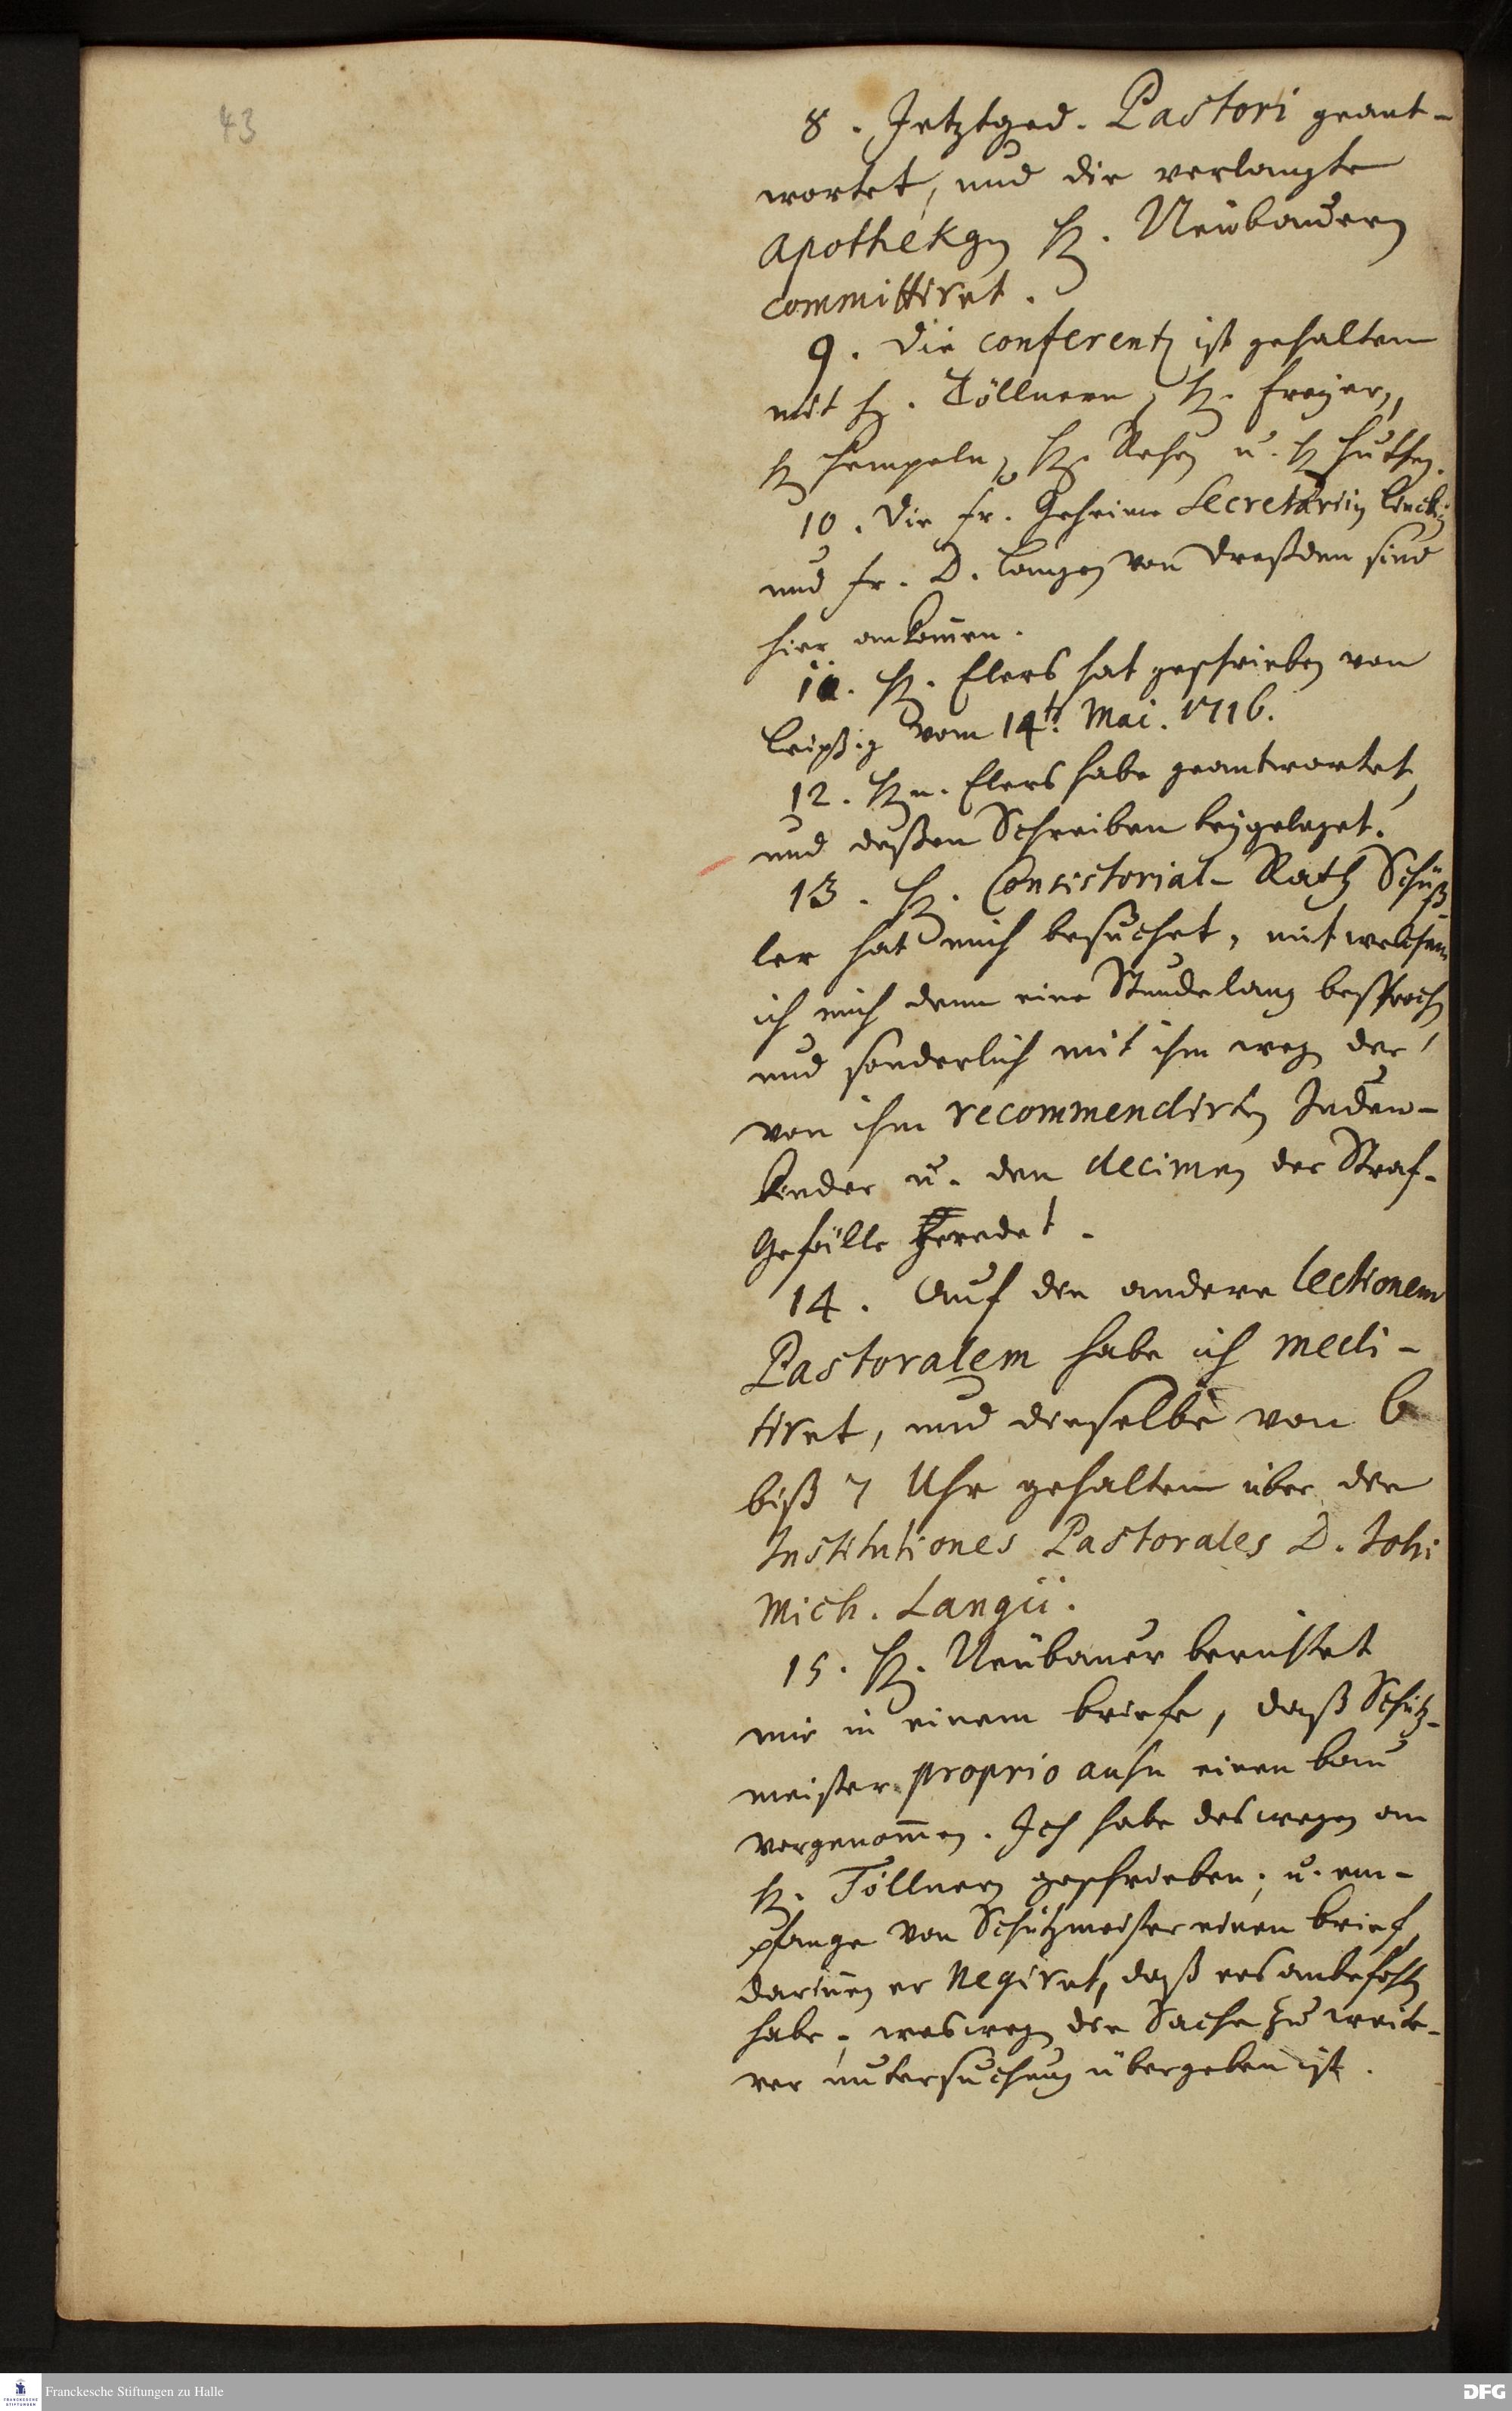 43
8. Jetztged. Pastori geant-
wortet, und die verlangte
Apotheken H. Neubauern
committiret.
9. Die conferentz ist gehalten
mit H. Töllnern, H. Freyer,
H Hempeln, H. Rehen u. H
10. Die Fr. Geheime Secretariin
und Fr. D. Langen von Dreßden sind
hier ankom̄en.
11. H. Elers hat geschrieben von
Leipzig vom 14t. Mai. 1716.
12. Hn. Elers habe geantwortet,
und deßen Schreiben beygeleget.
13. H. Consistorial-Rath Schüß
ler hat mich besuchet, mit welchem
ich mich denn eine Stundelang besprochen
und sonderlich mit ihm wegen der
von ihm recommendirten Juden-
kinder u. den decimen der Straf-
Gefälle geredet.
14. Auf die andere lectionem
Pastoralem habe ich medi-
tiret, und dieselbe von 6
biß 7 Uhr gehalten über die
Institutiones Pastorales D. Joh:
Mich. Langii.
15. H. Neubauer berichtet
mir in einem briefe, daß Schütz-
meister proprio ausu einen bau
vorgenom̄en. Ich habe deswegen an
H. Töllnern geschrieben; u. em-
pfange von Schützmeister einen brief,
darin̄en er negiret, daß ers anbefohlen
habe, weswegen die Sache zu weite-
rer untersuchung übergeben ist.
Franckesche Stiftungen zu Halle
FRANCKESCHE
STIFTUNGEN
DFG